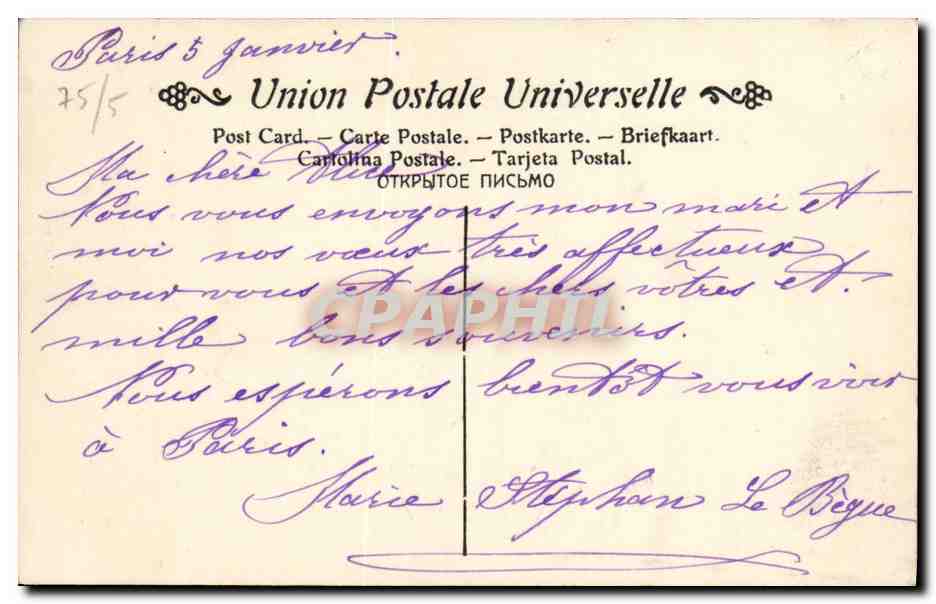 Paris 5 Janvier.
75/5
Union Postale Universelle
Post Card. — Carte Postale. — Postkarte. — Briefkaart.
Cartolina Postale. — Tarjeta Postal.
ОТКРЫТОЕ ПИСЬМО
Ma chère Alice
Nous vous envoyons mon mari et
moi nos vœux très affectueux
pour vous et les chers vôtres et
mille bons souvenirs.
CPAPHIL
Nous espérons bientôt vous voir
à Paris.
Marie Stéphan Le Bègue